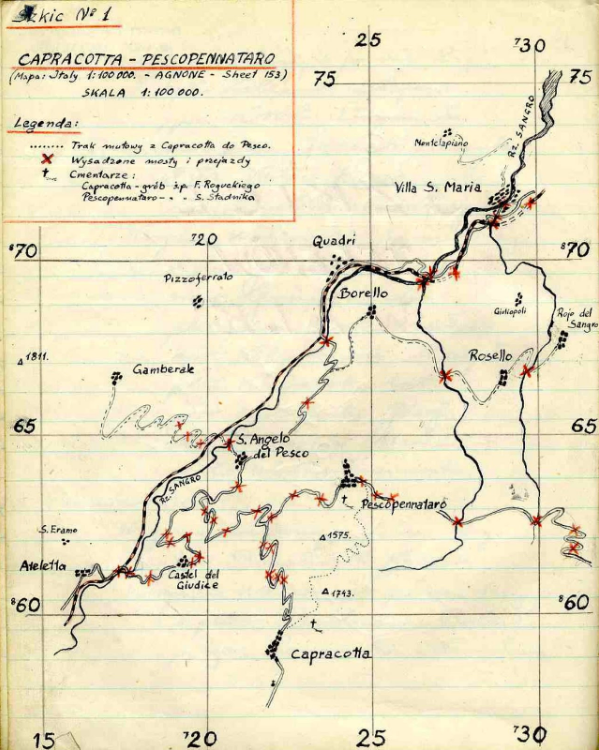 Szkic Nº 1
CAPRACOTTA - PESCOPENNATARO
(Mapa: Italy 1:100 000. - AGNONE - Sheet 153)
SKALA 1:100 000.
Legenda:
Trak mułowy z Capracotta do Pesco.
Wysadzone mosty i przejazdy
Cmentarze:
Capracotta - grób ś.p. F. Roguckiego
Pescopennataro - " - S. Stadnika
25
⁷30
75
75
Rz. SANGRO
Montelapiano
Villa S. Maria
⁷20
Quadri
⁸70
⁸70
Pizzoferrato
Borello
Giuliopoli
Rojo del
Sangro
△1811.
Gamberale
Rosello
65
65
S. Angelo
del Pesco
Rz. SANGRO
Pescopennataro
S. Eramo
△1575.
Ateletta
Castel del
Giudice
△1743.
⁸60
⁸60
Capracotta
15
⁷20
25
⁷30